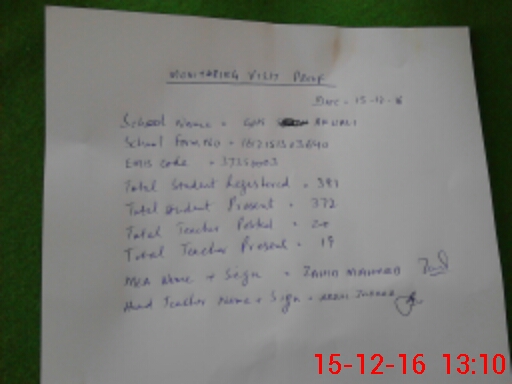 MONITORING VISIT PROOF
Date = 15-12-16
School Name = GHS RAWALI
School Form No =
EMIS code =
Total Student Registered = 381
Total Student Present = 372
Total Teacher Posted = 20
Total Teacher Present = 19
MEA Name + Sign = ZAHID MAHMOOD
Head Teacher Name + Sign =
15-12-16 13:10